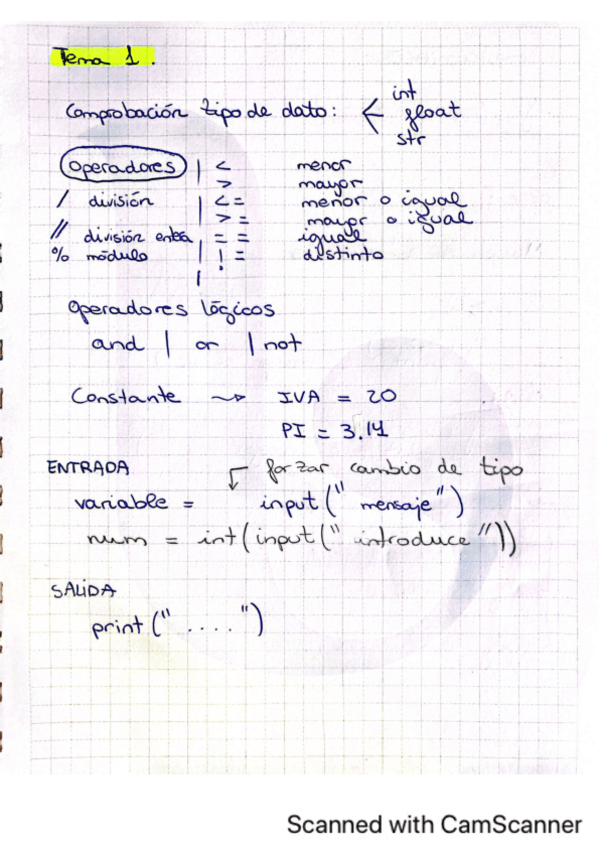 Tema 1.
int
Comprobación tipo de dato: < float
str
Operadores | < menor
> mayor
/ división | <= menor o igual
| >= mayor o igual
// división entea | == igual
% módulo | != distinto
|
Operadores lógicos
and | or | not
Constante ~> IVA = 20
PI = 3.14
ENTRADA forzar cambio de tipo
variable = input(" mensaje")
num = int(input(" introduce"))
SALIDA
print(" ....")
Scanned with CamScanner